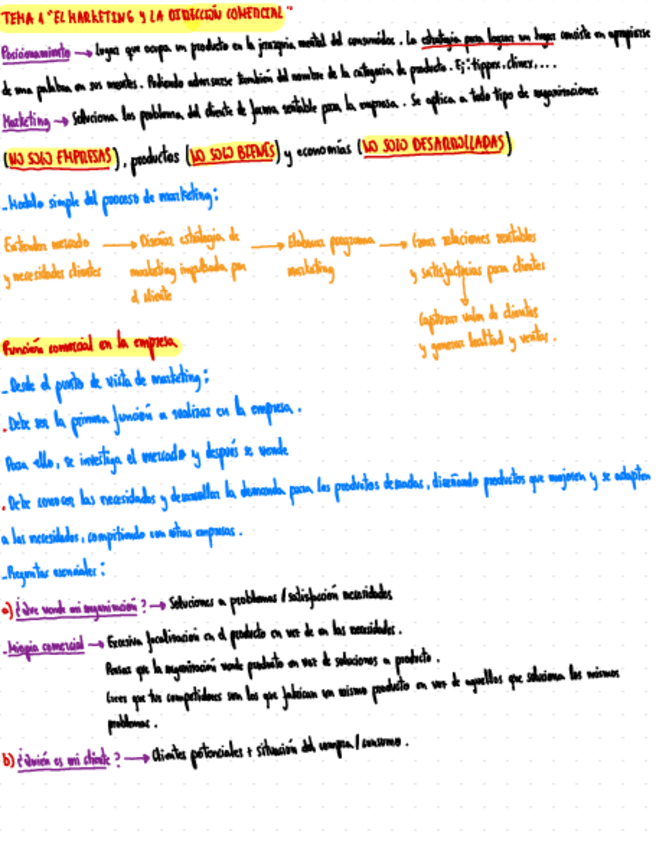 TEMA 1 "EL MARKETING Y LA DIRECCIÓN COMERCIAL"
Posicionamiento → Lugar que ocupa un producto en la jerarquía mental del consumidor. La estrategia para lograr un lugar consiste en apropiarse
de una palabra en sus mentes. Pudiendo adueñarse también del nombre de la categoría de producto. Ej: tippex, clinex, ...
Marketing → Soluciona los problemas del cliente de forma rentable para la empresa. Se aplica a todo tipo de organizaciones
(NO SOLO EMPRESAS), productos (NO SOLO BIENES) y economías (NO SOLO DESARROLLADAS)
- Modelo simple del proceso de marketing:
Entender mercado → Diseñar estrategia de → Elaborar programa → Crear relaciones rentables
y necesidades clientes marketing impulsada por marketing y satisfactorias para clientes
el cliente ↓
Capturar valor de clientes
y generar lealtad y ventas.
Función comercial en la empresa
- Desde el punto de vista de marketing:
. Debe ser la primera función a realizar en la empresa.
Para ello, se investiga el mercado y después se vende
. Debe conocer las necesidades y desarrollar la demanda para los productos deseados, diseñando productos que mejoren y se adapten
a las necesidades, compitiendo con otras empresas.
- Preguntas esenciales:
a) ¿Qué vende mi organización? → Soluciones a problemas / satisfacción necesidades
- Miopía comercial → Excesiva focalización en el producto en vez de en las necesidades.
Pensar que la organización vende producto en vez de soluciones a producto.
Crees que tus competidores son los que fabrican un mismo producto en vez de aquellos que solucionan los mismos
problemas.
b) ¿Quién es mi cliente? → Clientes potenciales + situación del compra / consumo.